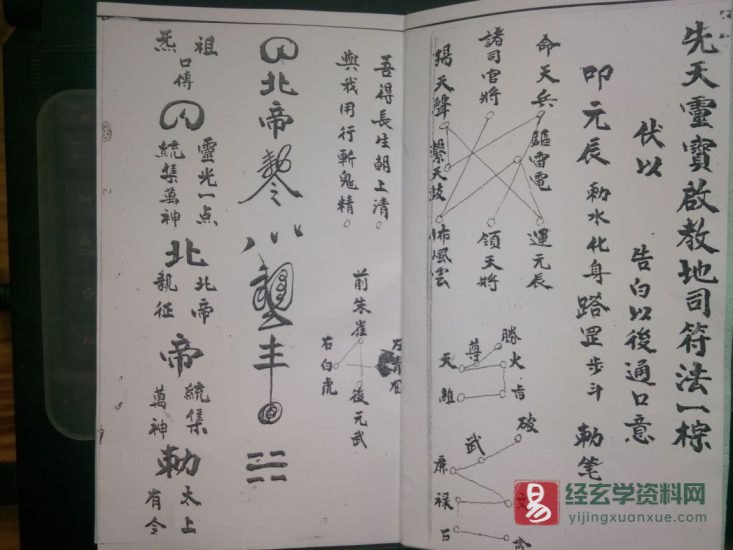 先天靈寶啟教地司符法一棕
伏以　告白以後通口意
叩元辰　勅水化身　踏罡步斗　勅笔
命天兵　驅雷電　運元辰
諸司官將　領天將
揭天聲　擊天鼓　怖風雲
勝
尊
天　火
維　吉
破
武
廉
祿
文
巨
吾得長生朝上清
與我用行斬鬼精
前朱雀
右白虎
後元武
北帝
祖炁
口傳
靈光一点
統集萬神
北
北帝
親征
帝
統集
萬神
勅
太上
有令
易
经玄学资料网
yijingxuanxue.com